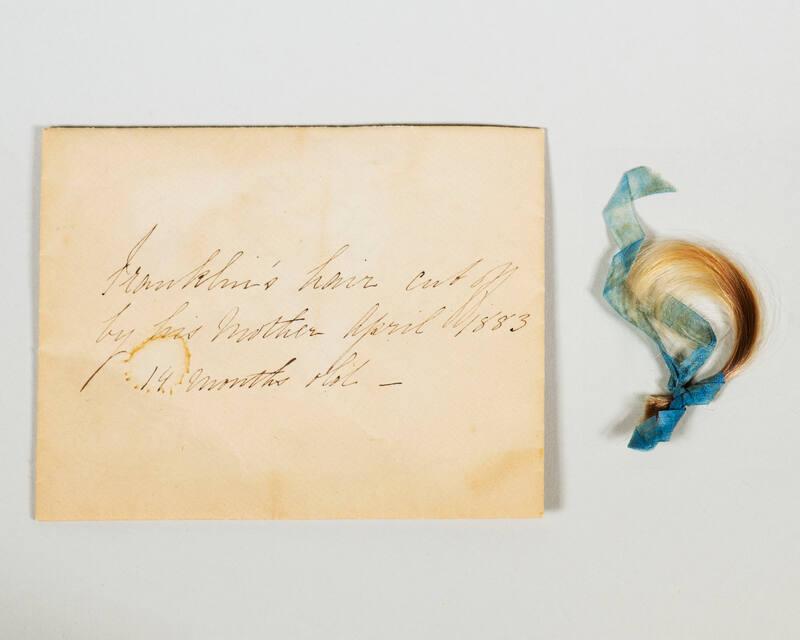 Franklin's hair cut off
by his Mother April 1883
14 months old —